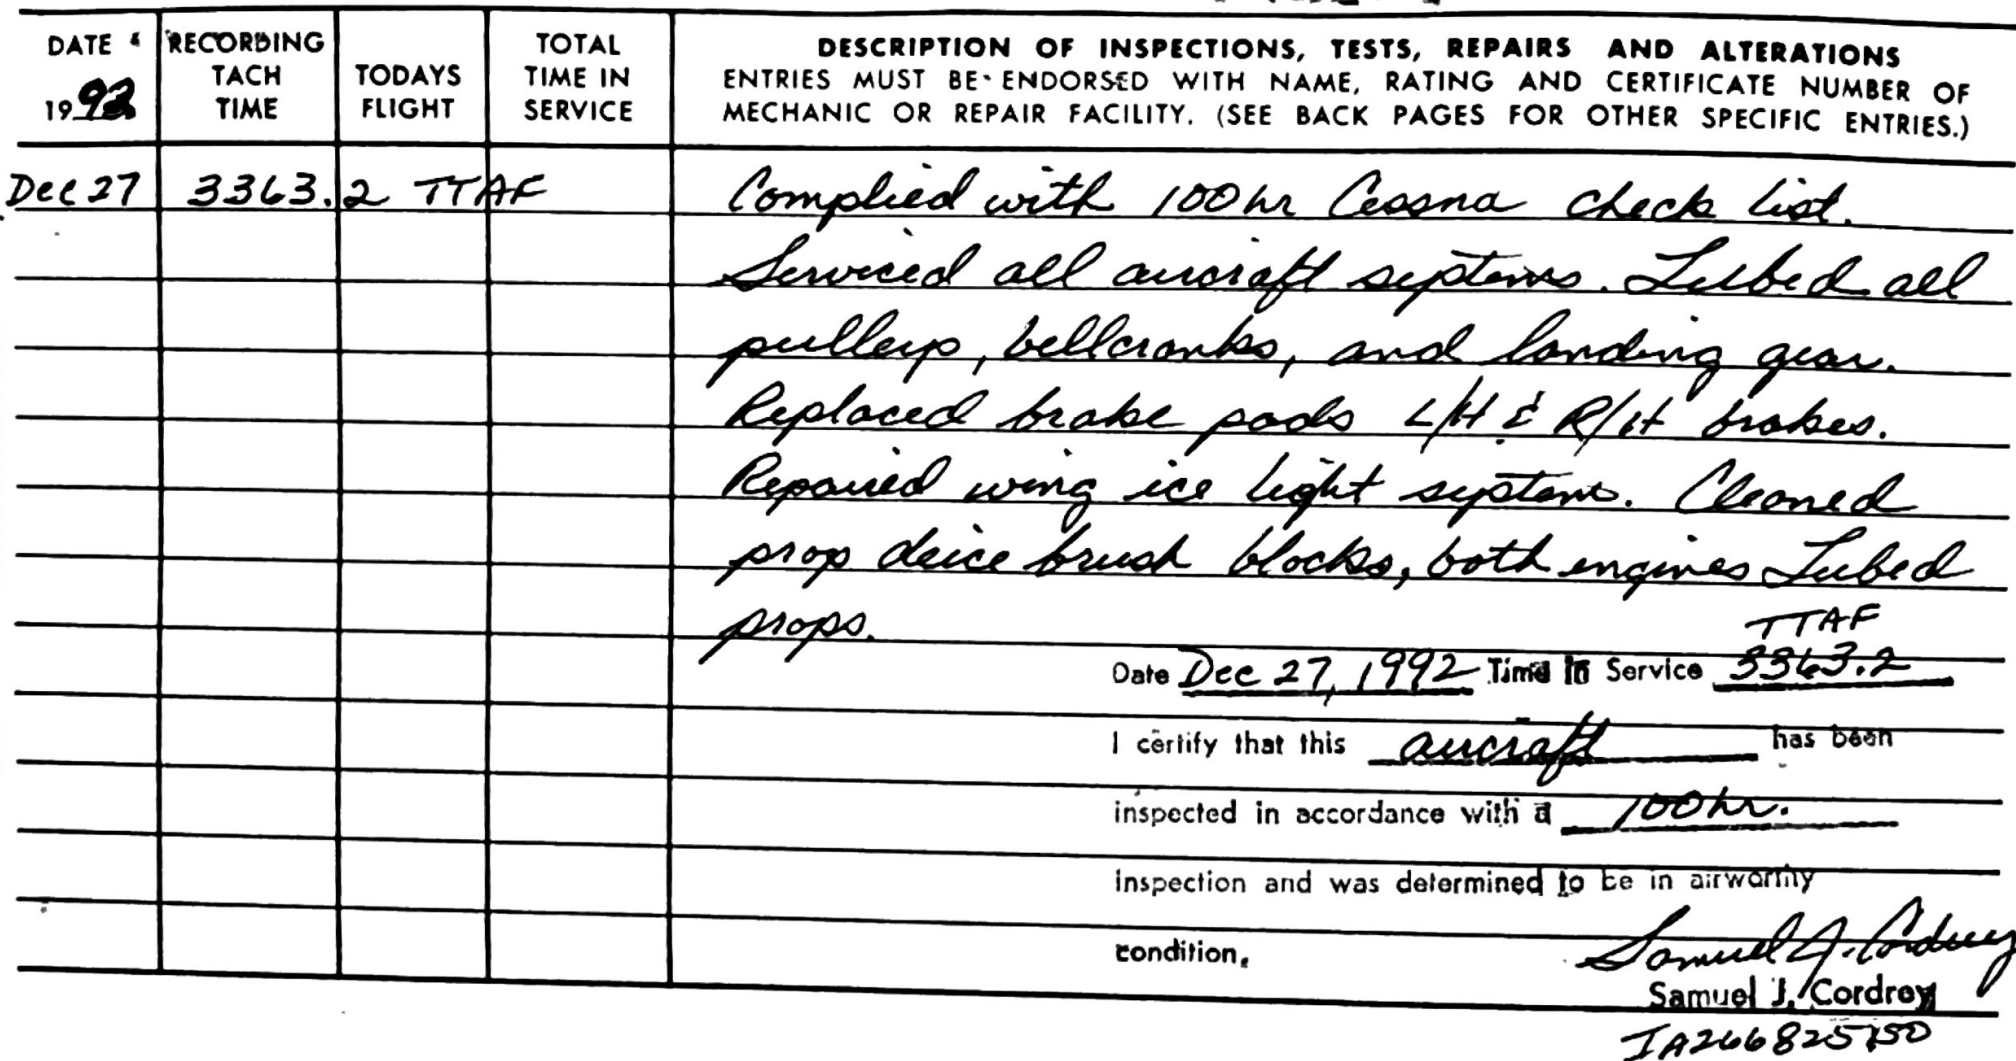 DATE
1992
RECORDING
TACH
TIME
TODAYS
FLIGHT
TOTAL
TIME IN
SERVICE
DESCRIPTION OF INSPECTIONS, TESTS, REPAIRS AND ALTERATIONS
ENTRIES MUST BE ENDORSED WITH NAME, RATING AND CERTIFICATE NUMBER OF
MECHANIC OR REPAIR FACILITY. (SEE BACK PAGES FOR OTHER SPECIFIC ENTRIES.)
Dec 27 3363.2 TTAF Complied with 100 hr Cessna check list.
Serviced all aircraft systems. Lubed all
pulleys, bellcranks, and landing gear.
Replaced brake pads L/H & R/H brakes.
Repaired wing ice light system. Cleaned
prop deice brush blocks, both engines Lubed
props.
TTAF
Date Dec 27, 1992 Time In Service 3363.2
I certify that this aircraft has been
inspected in accordance with a 100 hr.
inspection and was determined to be in airworthy
condition.
Samuel J. Cordrey
Samuel J. Cordrey